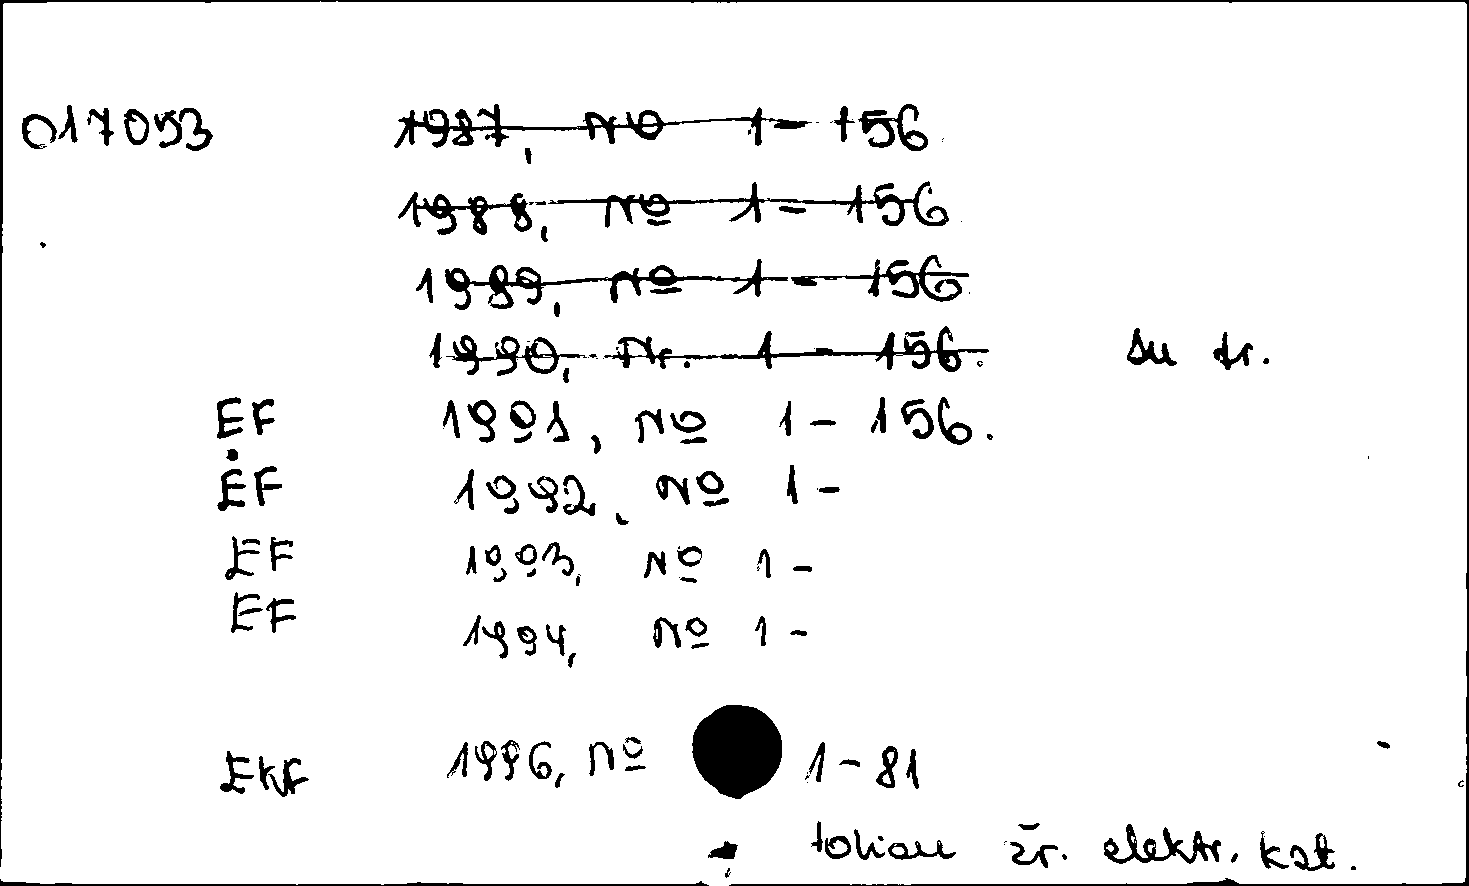 017053 1987, № 1 - 156
1988, № 1 - 156
1989, № 1 - 156
1990, Nr. 1 - 156. su tr.
EF 1991, № 1 - 156.
EF 1992, № 1 -
EF 1993, № 1 -
EF 1994, № 1 -
EKF 1996, № 1 - 81
toliau žr. elektr. kat.